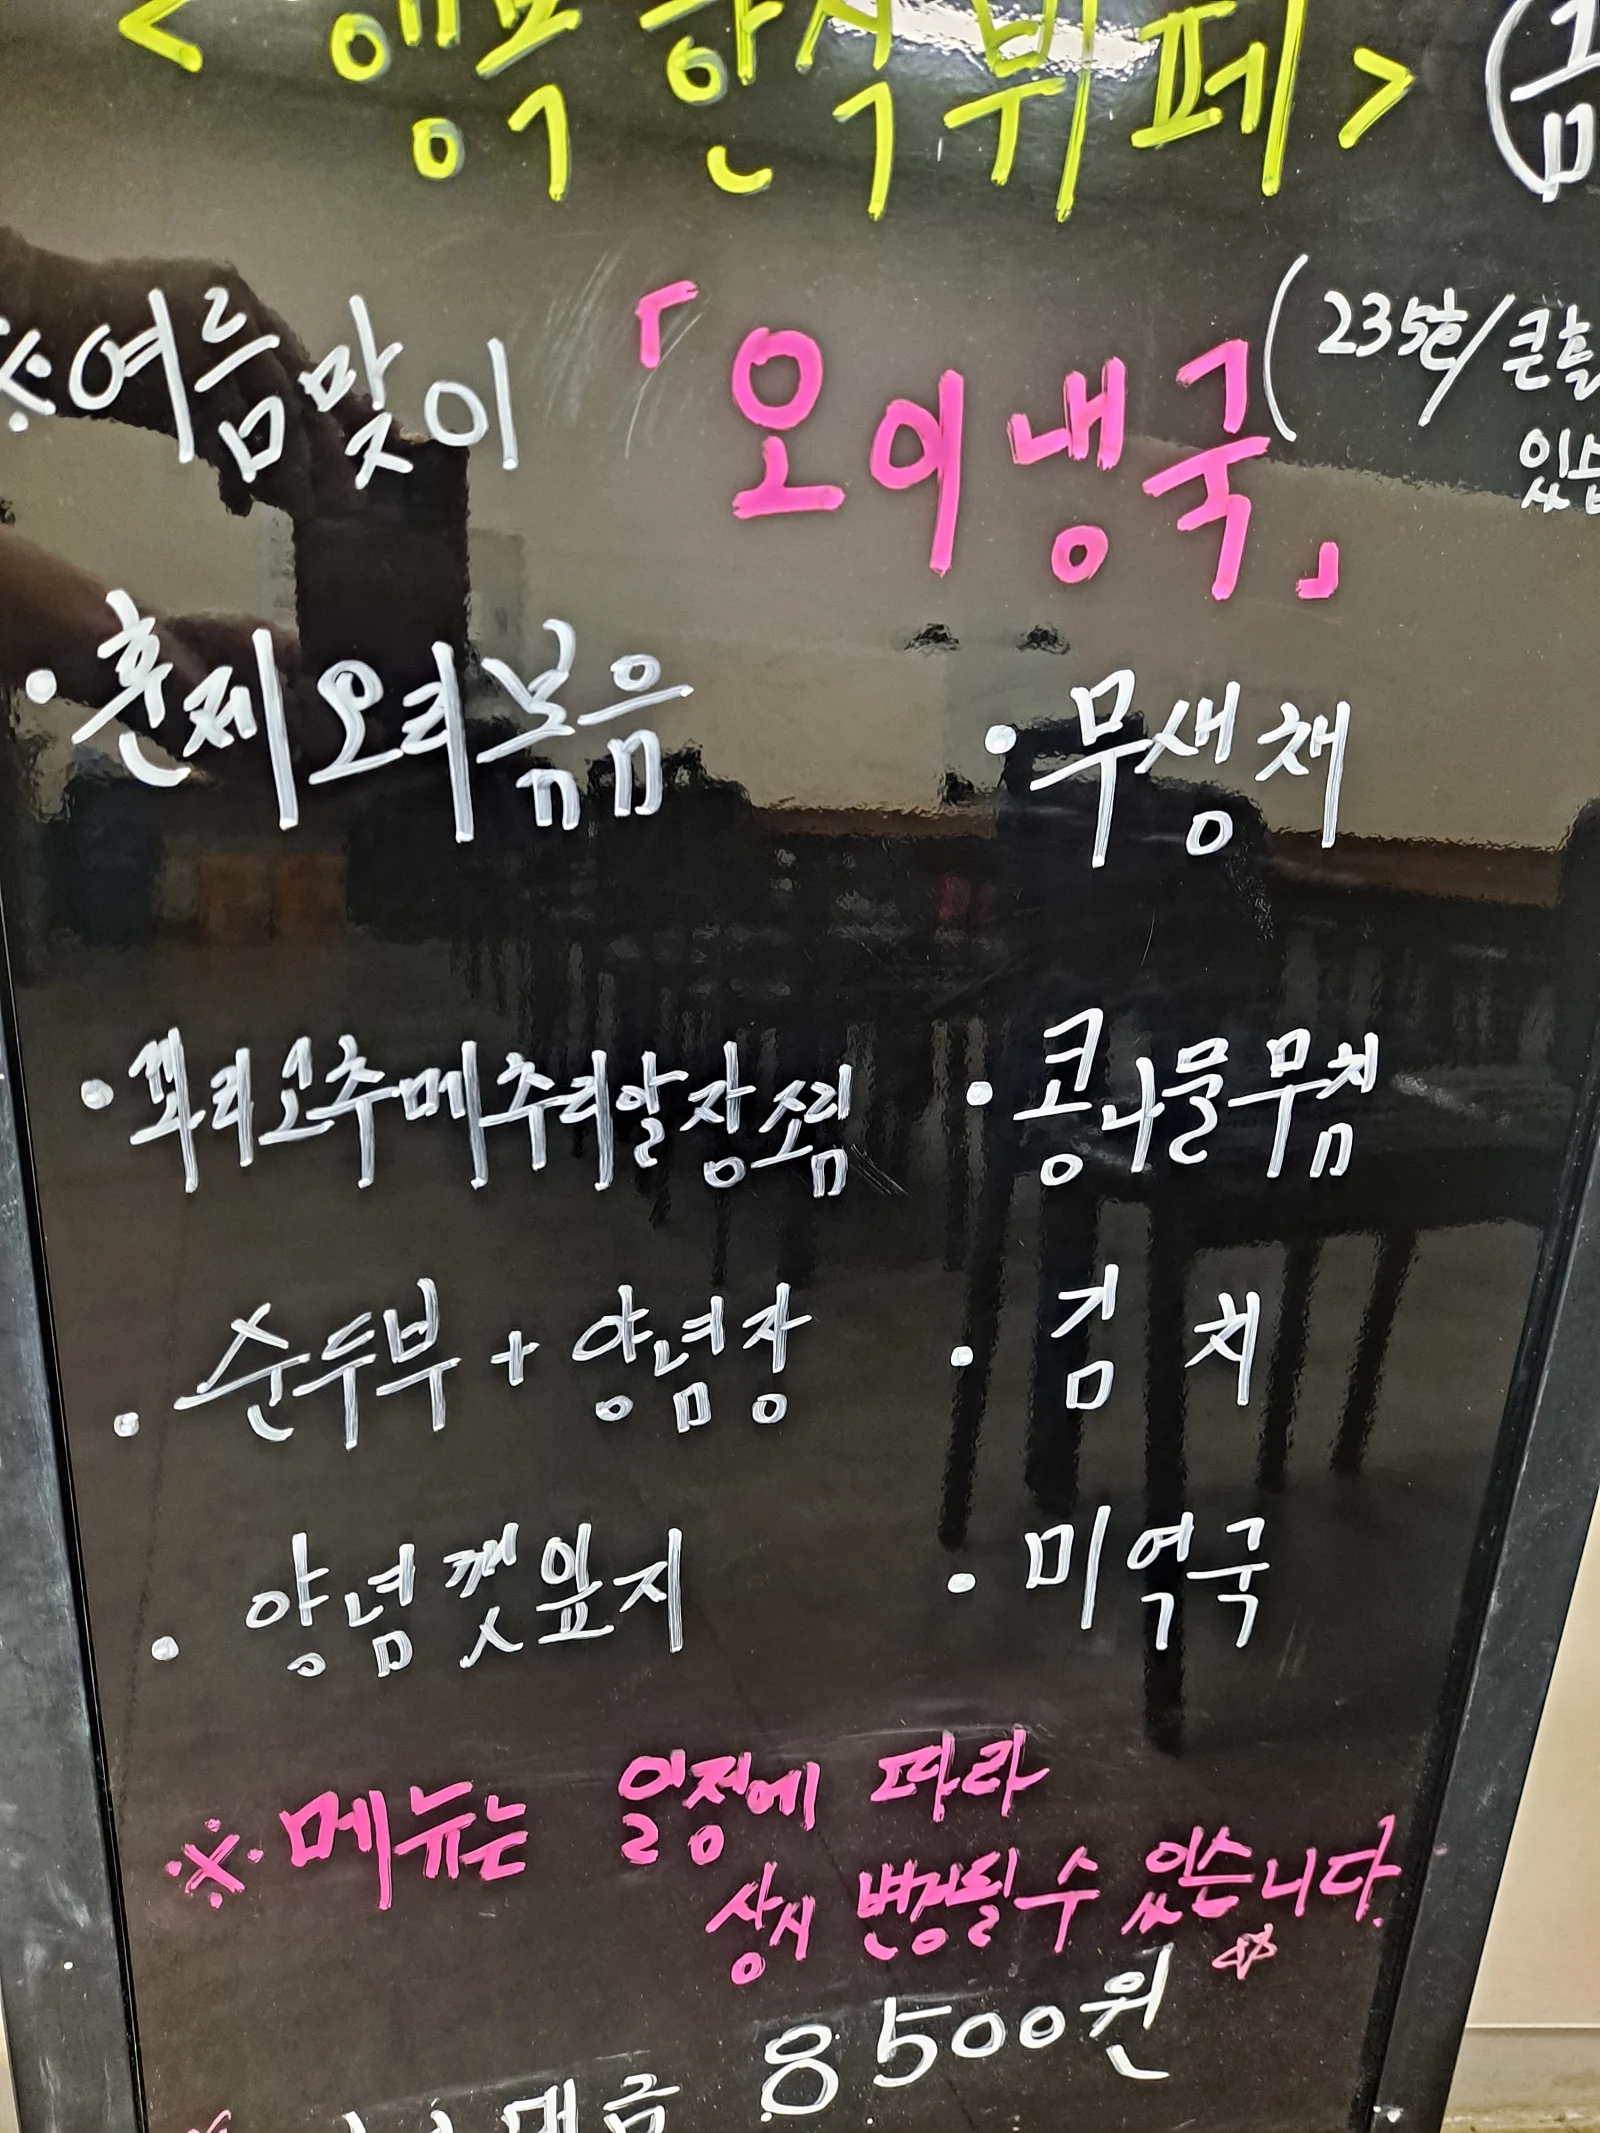 < 앵콕 한식 뷔페 >
※여름맞이 「오이냉국」 (235호/큰홀
있습
· 훈제오리볶음 · 무생채
· 꽈리고추메추리알장조림 · 콩나물무침
· 순두부 + 양념장 · 김 치
· 양념깻잎지 · 미역국
※ 메뉴는 일정에 따라
상시 변경될 수 있습니다.
8500원